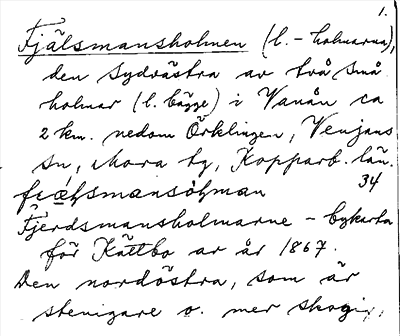 1.
Fjälsmansholmen (l. - holmarna),
den sydvästra av två små
holmar (l. bägge) i Vanån ca
2 km. nedom Örklingen, Venjans
sn, Mora tg, Kopparb. län.
34
Fjerdsmansholmarne - bykarta
för Kättbo av år 1867.
Den nordöstra, som är
stenigare o. mer skogi,